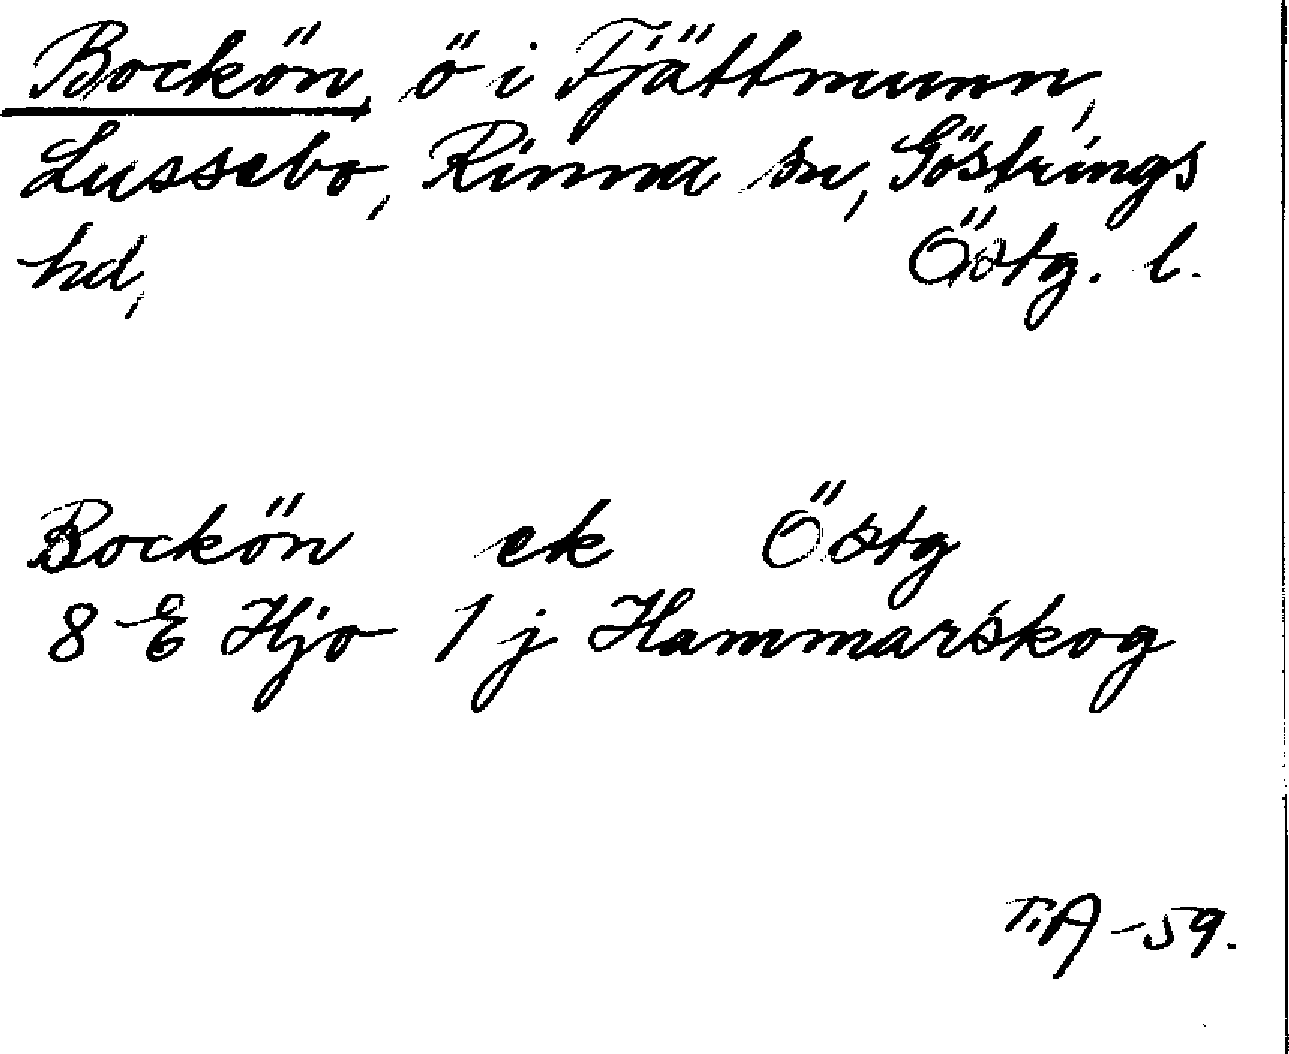 Bockön, ö i Fjättmunn,
Lussebo, Rinna sn, Göstrings
hd, Östg. l.
Bockön ek Östg
8 E Hjo 1 j Hammarskog
T.A -59.